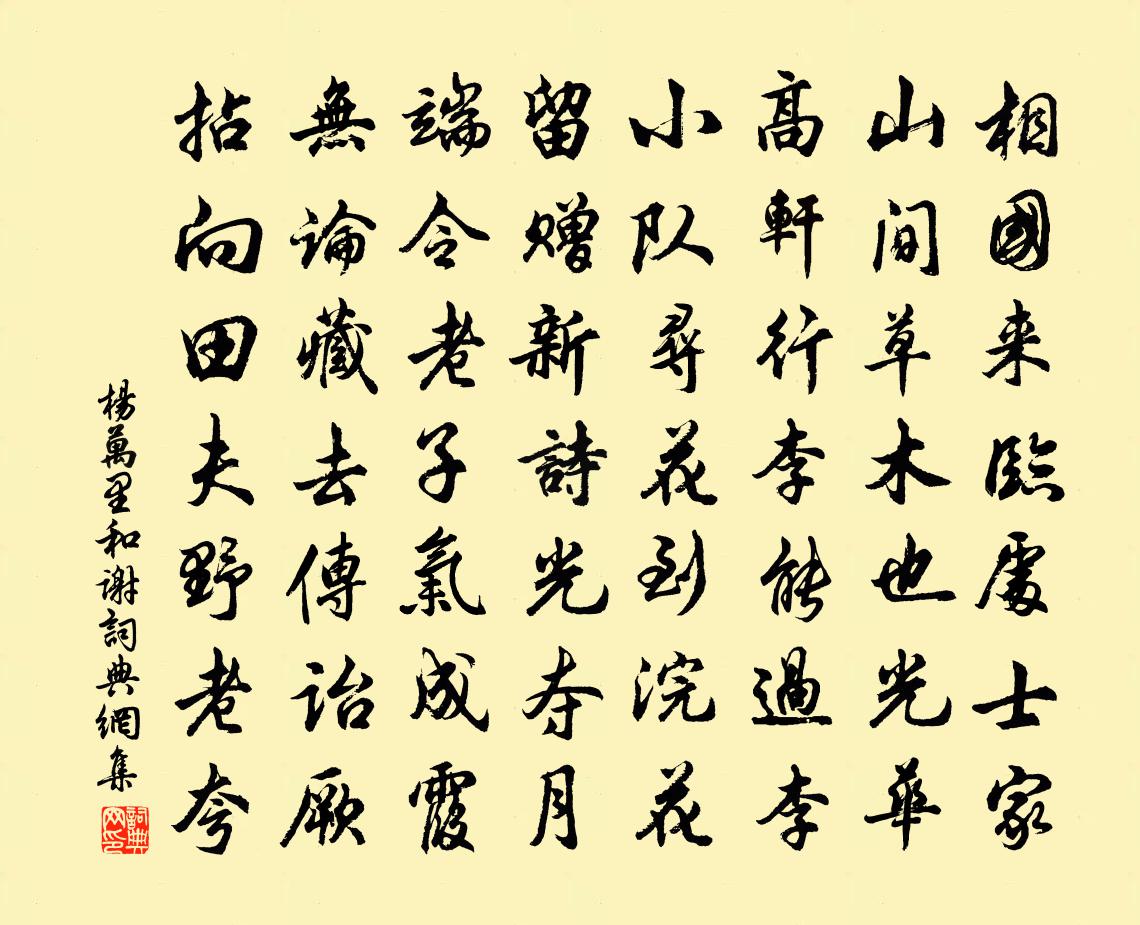 相國来臨處士家
山间草木也光華
高軒行李能過李
小队尋花到浣花
留赠新詩光夺月
端令老子氣成霞
無論藏去傳詒厥
拈向田夫野老夸
楊萬里和谢詞典網集
詞典网印